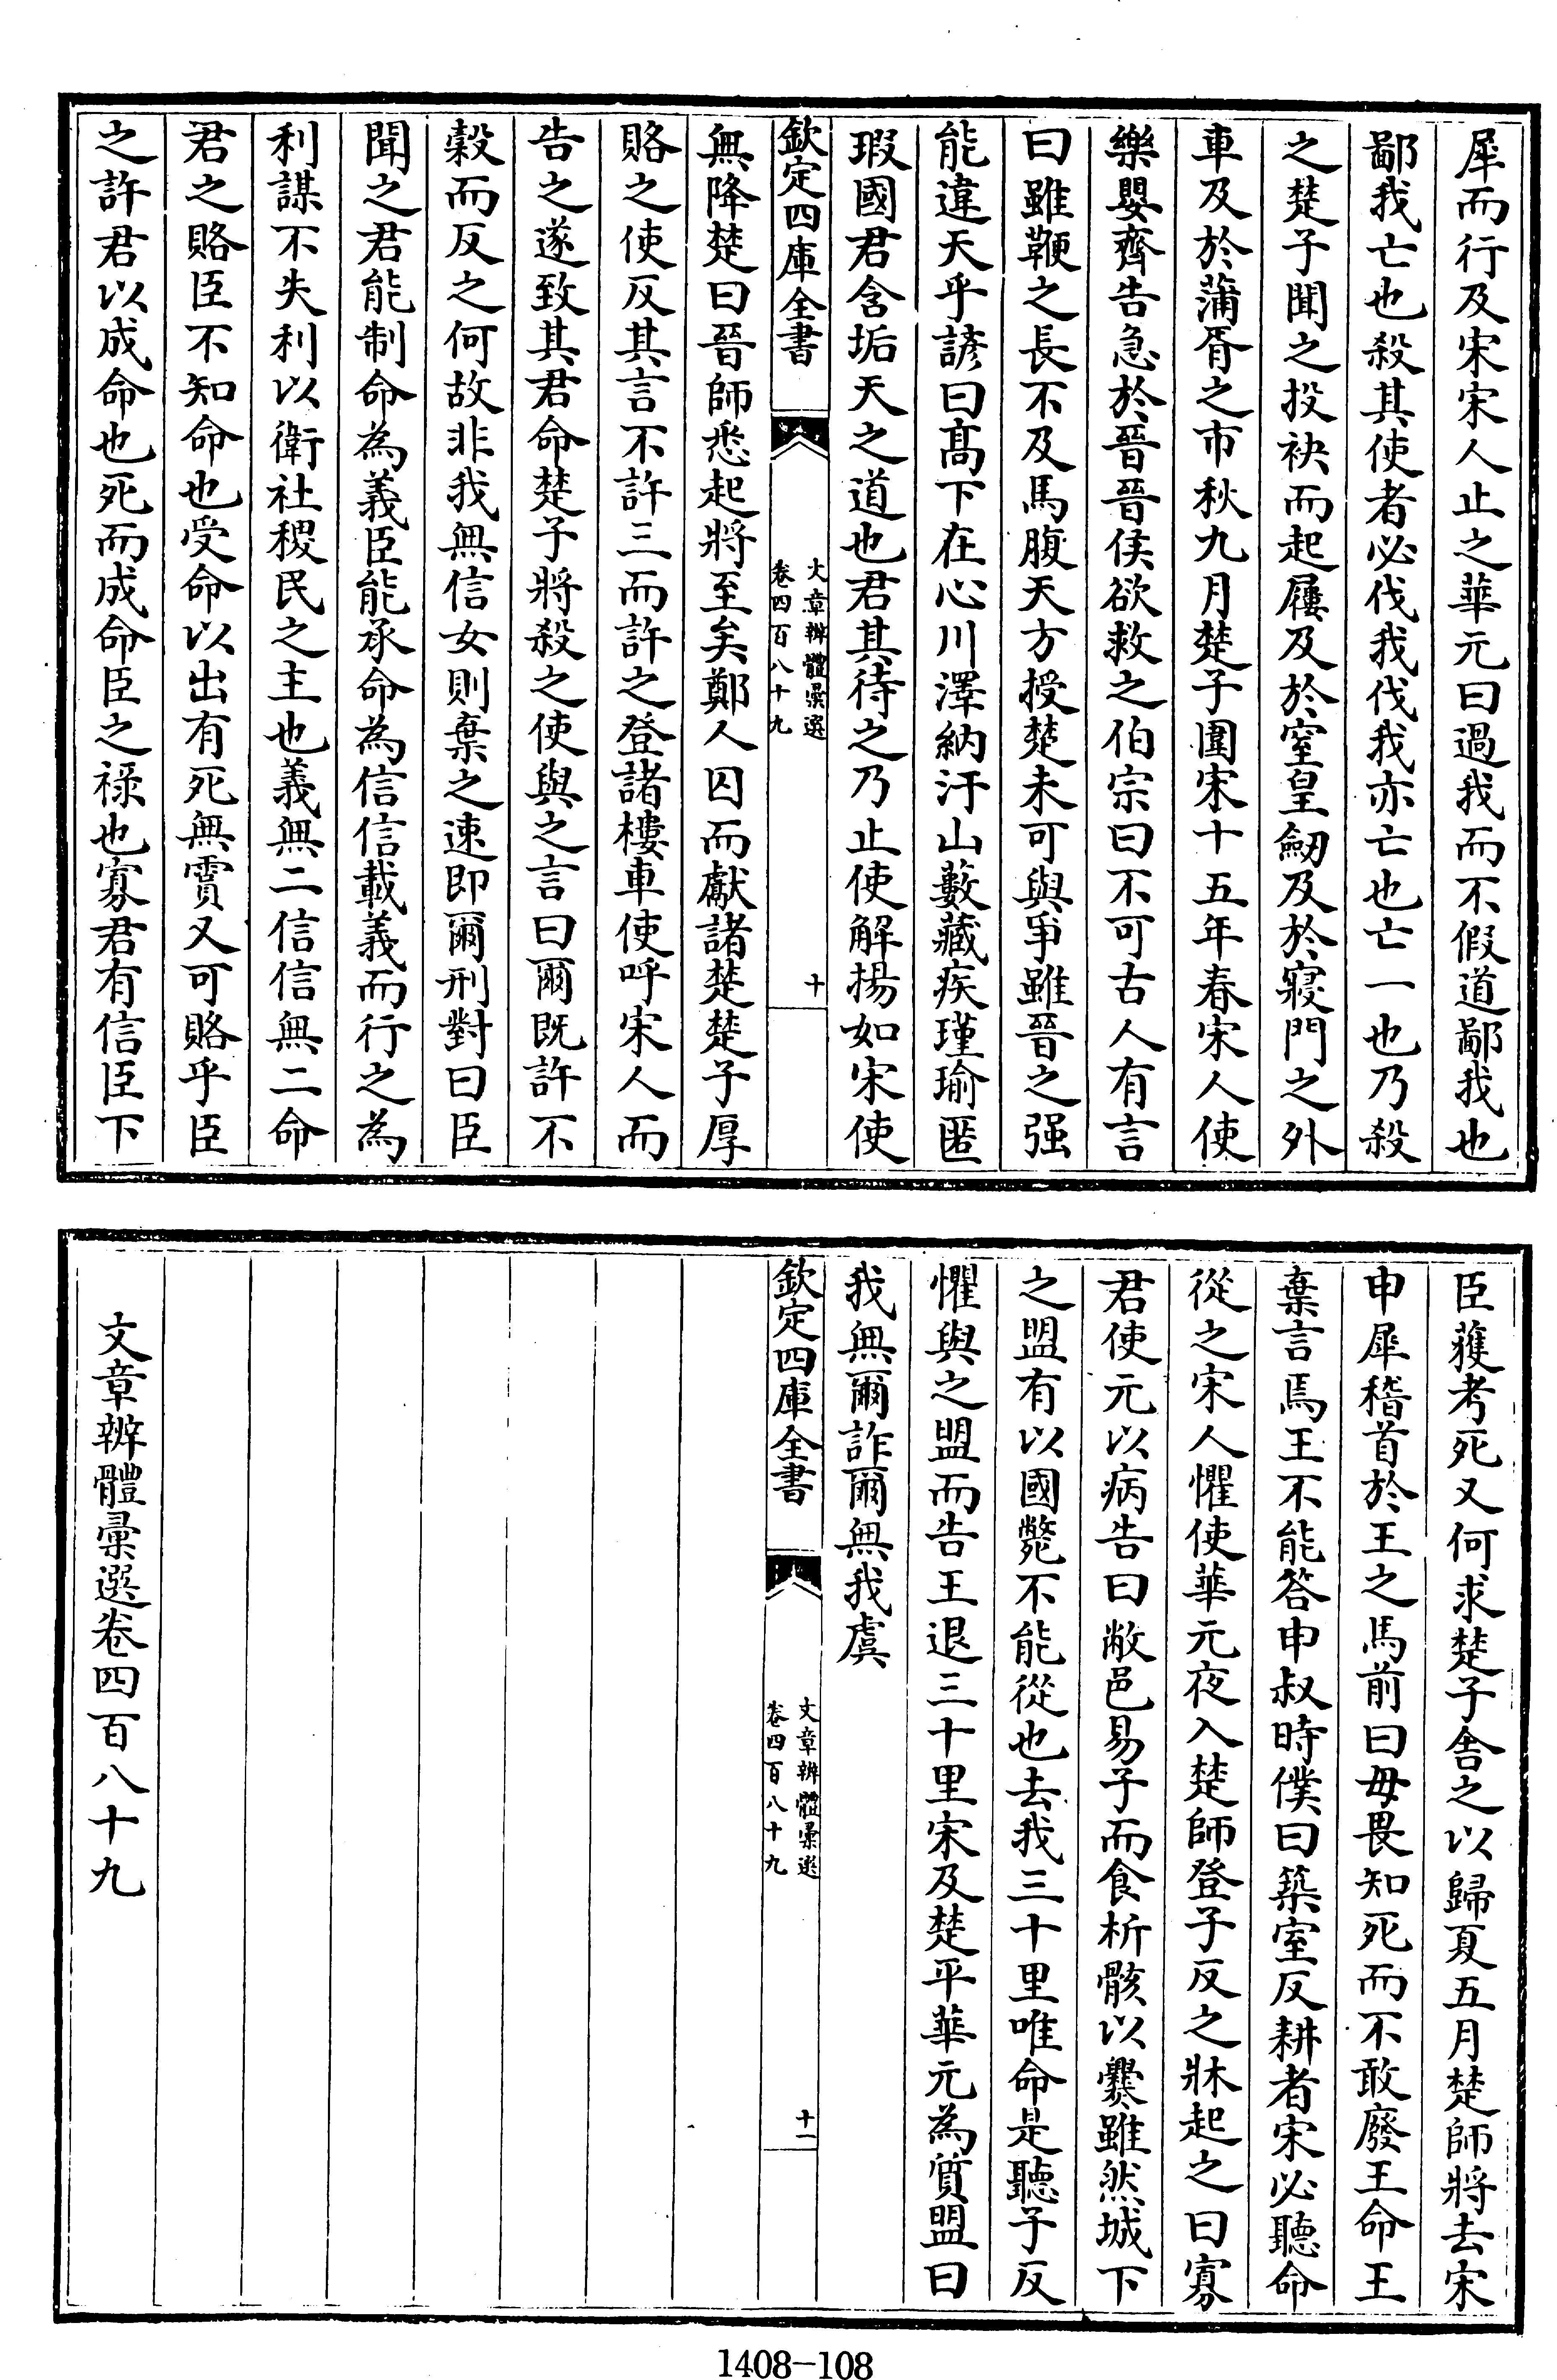 犀而行及宋宋人止之華元曰過我而不假道鄙我也
鄙我亡也殺其使者必伐我伐我亦亡也亡一也乃殺
之楚子聞之投袂而起屨及於窒皇劒及於寢門之外
車及於蒲胥之市秋九月楚子圍宋十五年春宋人使
樂嬰齊告急於晉晉侯欲救之伯宗曰不可古人有言
曰雖鞭之長不及馬腹天方授楚未可與爭雖晉之强
能違天乎諺曰髙下在心川澤納汙山藪藏疾瑾瑜匿
瑕國君含垢天之道也君其待之乃止使解揚如宋使
欽定四庫全書
文章辨體彚選
卷四百八十九
十
無降楚曰晉師悉起將至矣鄭人囚而獻諸楚楚子厚
賂之使反其言不許三而許之登諸樓車使呼宋人而
告之遂致其君命楚子將殺之使與之言曰爾既許不
糓而反之何故非我無信女則棄之速即爾刑對曰臣
聞之君能制命為義臣能承命為信信載義而行之為
利謀不失利以衛社稷民之主也義無二信信無二命
君之賂臣不知命也受命以出有死無霣又可賂乎臣
之許君以成命也死而成命臣之祿也寡君有信臣下
臣獲考死又何求楚子舍之以歸夏五月楚師將去宋
申犀稽首於王之馬前曰毋畏知死而不敢廢王命王
棄言焉王不能答申叔時僕曰築室反耕者宋必聽命
從之宋人懼使華元夜入楚師登子反之牀起之曰寡
君使元以病告曰敝邑易子而食析骸以爨雖然城下
之盟有以國斃不能從也去我三十里唯命是聽子反
懼與之盟而告王退三十里宋及楚平華元為質盟曰
我無爾詐爾無我虞
欽定四庫全書
文章辨體彚選
卷四百八十九
十一
文章辨體彚選卷四百八十九
1408-108